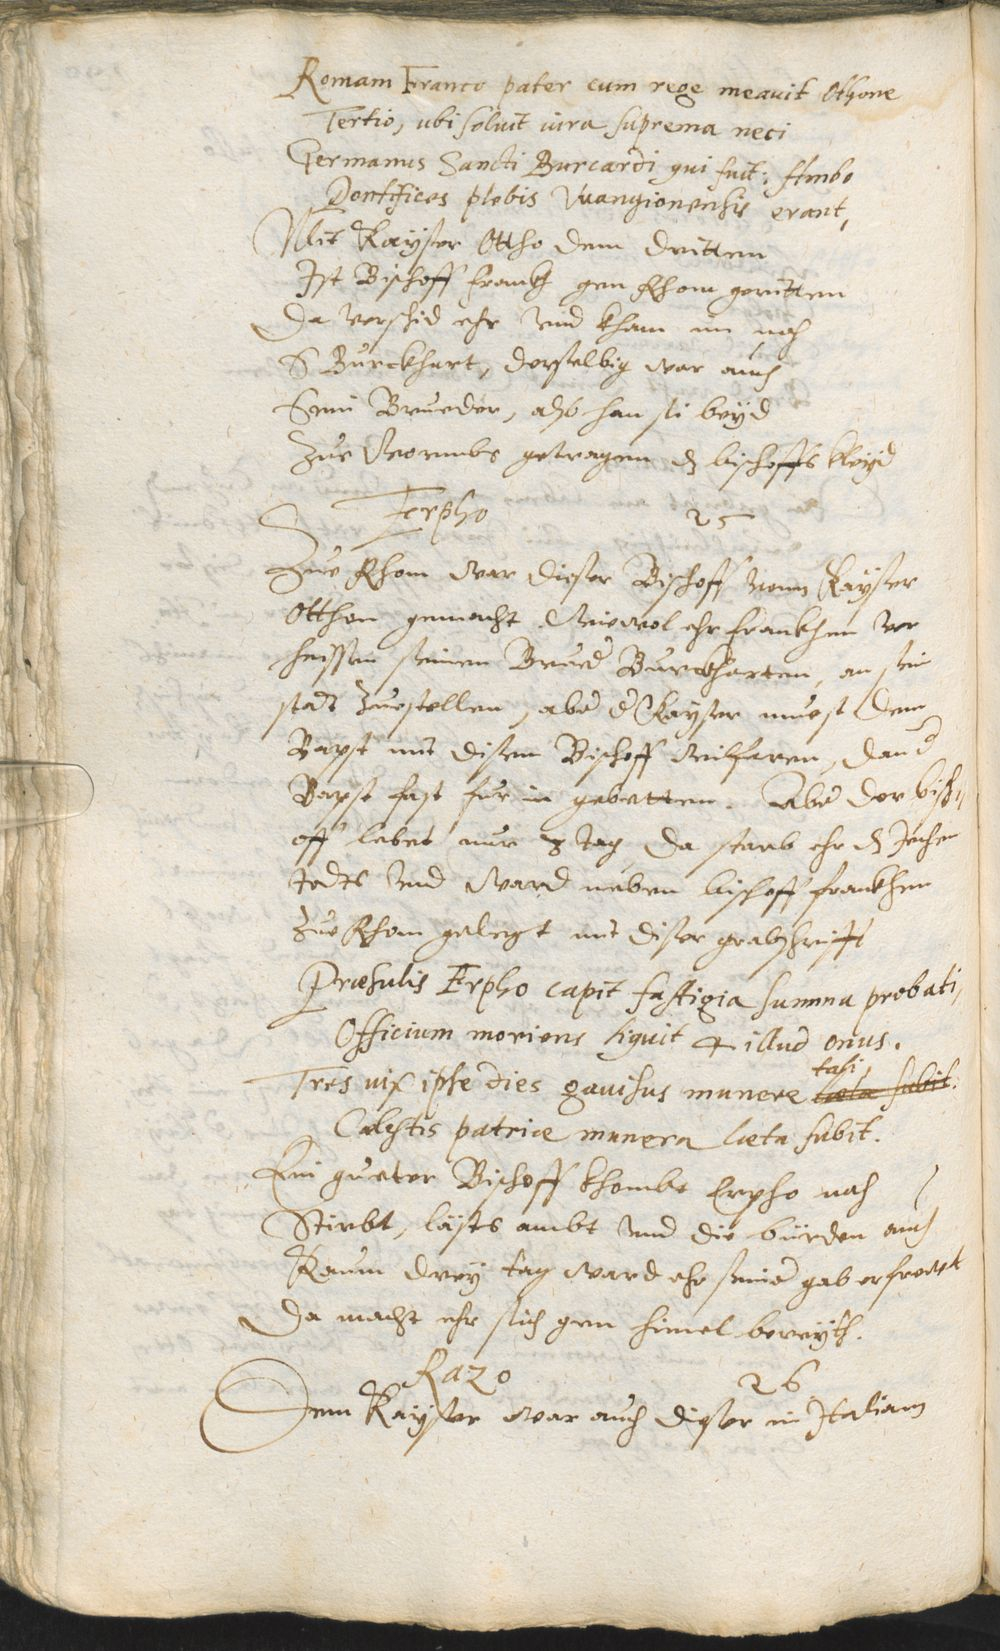 Romam Franco pater cum rege meavit Othone
Tertio, ubi solvit iura suprema neci
Germanus Sancti Burcardi qui fuit; Ambo
Pontifices plebis Vuangionensis erant,
Mit Kayser Ottho dem dritten
Ist Bischoff Franckh gen Rhom geritten
Da verschid ehr und kham im nach
S Burckhart, derselbig war auch
Sein Brueder, also han sie beyd
Zue Wormbs getragen dz bischoffs kleyd
Ferpho 25
Zue Rhom war dieser Bischoff vonn Kayser
Otthon gemacht Wiewol ehr Frankhen ver
heissen seinen Brued Burckharten, an sein
statt zuestellen, aber d Kayser muest dem
Bapst mit disem Bischoff wilfaren, dan d
Bapst fast fur in gebetten. Aber der bisch
off lebet nur 3 tag da starb ehr dz
todts und ward neben bischoff frankhen
Zue Rhom gelegt mit diser grabschrifft
Præsulis Erpho capit fastigia summa probati,
Officium moriens liquit & illud onus.
Tres vix ipse dies gavisus munere læta subit.
tali,
Cælestis patriæ munera læta subit.
Ein gueter Bischoff khombt Erpho nach
Stirbt, läßts ambt und die bürden auch
Kaum drey tag ward ehr seiner gab erfrewt
Da macht ehr sich gen himel bereyth.
Razo 26
Dem Kayser war auch dieser in Italiam